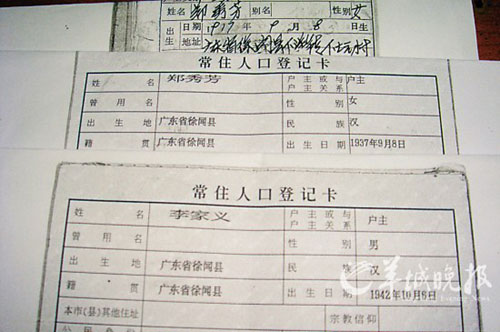 姓名 郑秀芳 别名 性别 女
出生日期 19 7 年 9 月 8 日生
出生地址
常住人口登记卡
姓名 郑秀芳 户主或与户主关系 户主
曾用名 性别 女
出生地 广东省徐闻县 民族 汉
籍贯 广东省徐闻县 出生日期 1937年9月8日
常住人口登记卡
姓名 李家义 户主或与户主关系 户主
曾用名 性别 男
出生地 广东省徐闻县 民族 汉
籍贯 广东省徐闻县 出生日期 1942年10月6日
本市(县)其他住址 宗教信仰
羊城晚报